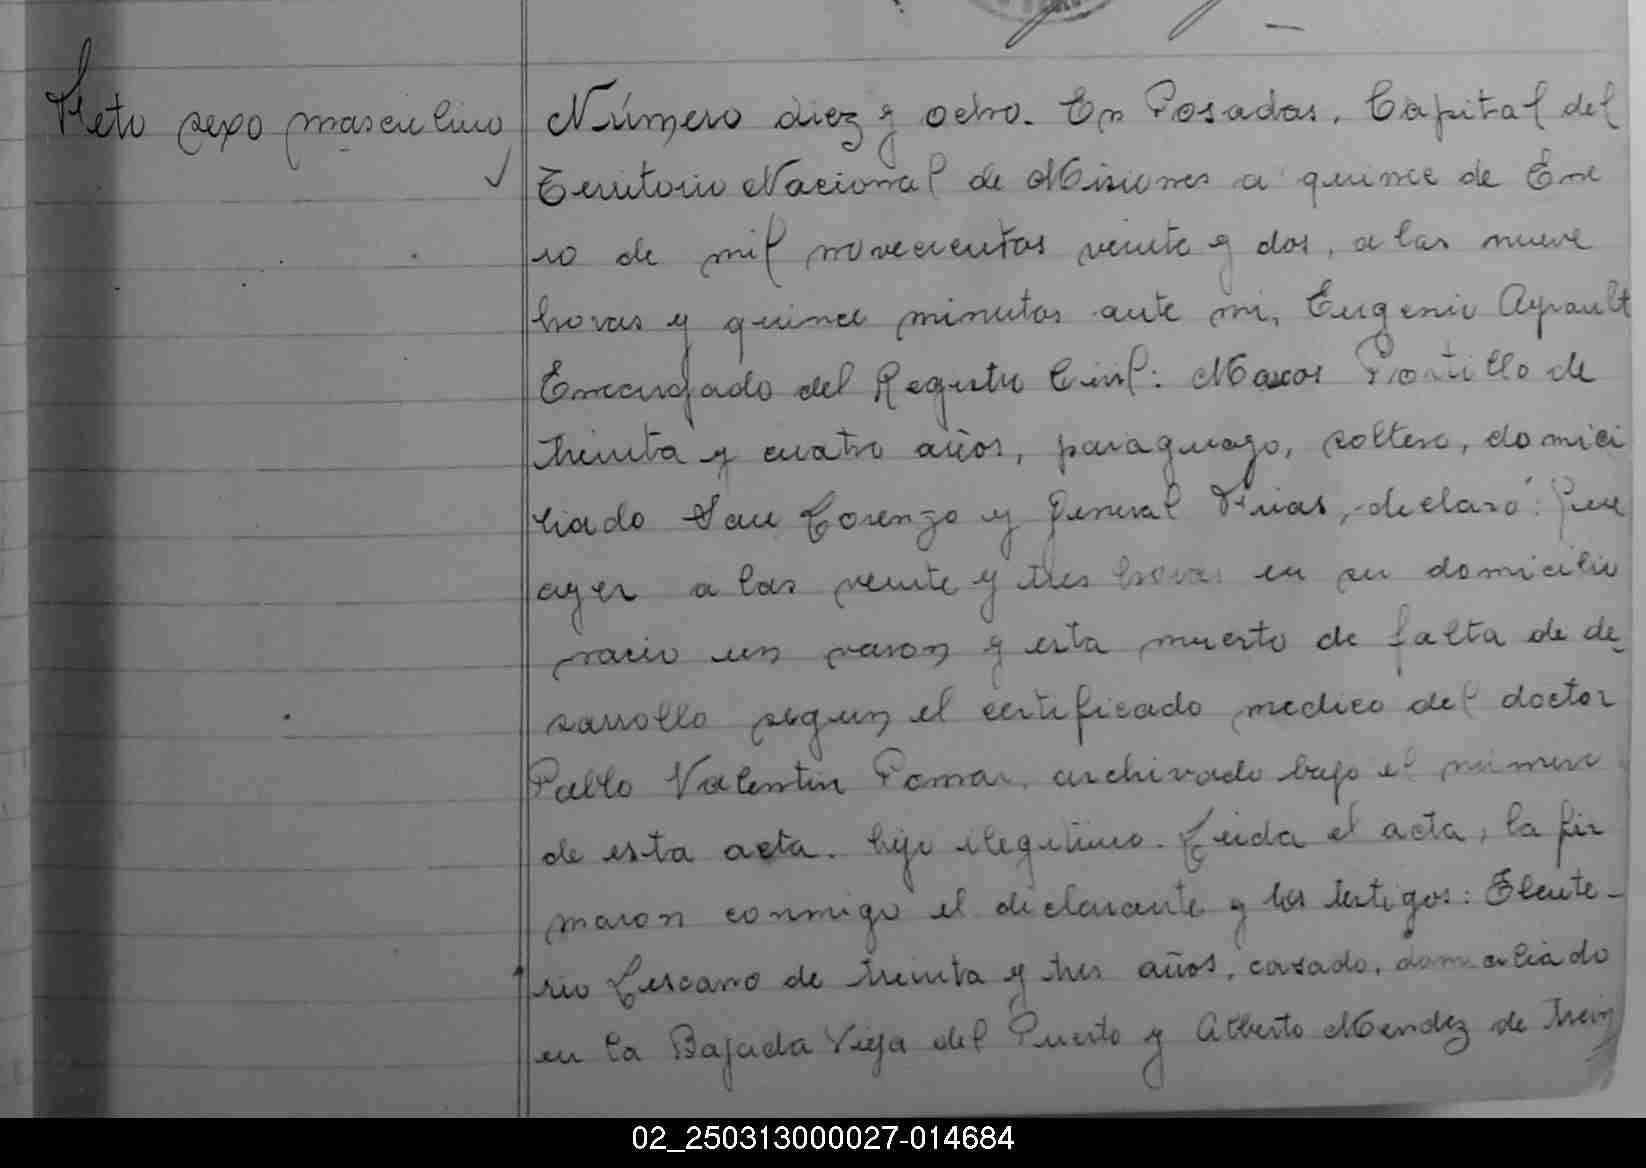 Feto sexo masculino
Número diez y ocho. En Posadas, Capital del
Territorio Nacional de Misiones a quince de Ene
ro de mil novecientos veinte y dos, a las nueve
horas y quince minutos ante mi, Eugenio Ayrault
Encargado del Registro Civil: Marcos Portillo de
treinta y cuatro años, paraguayo, soltero, domici
liado San Lorenzo y General Frias, declaró: Que
ayer a las veinte y tres horas en su domicilio
nacio un varon y esta muerto de falta de de
sarrollo segun el certificado medico del doctor
Pablo Valentin Pomar, archivado bajo el numero
de esta acta. hijo ilegitimo. Leida el acta, la fir
maron conmigo el declarante y los testigos: Eleute-
rio Lescano de treinta y tres años, casado, domiciliado
en la Bajada Vieja del Puerto y Alberto Mendez de trein
02_250313000027-014684